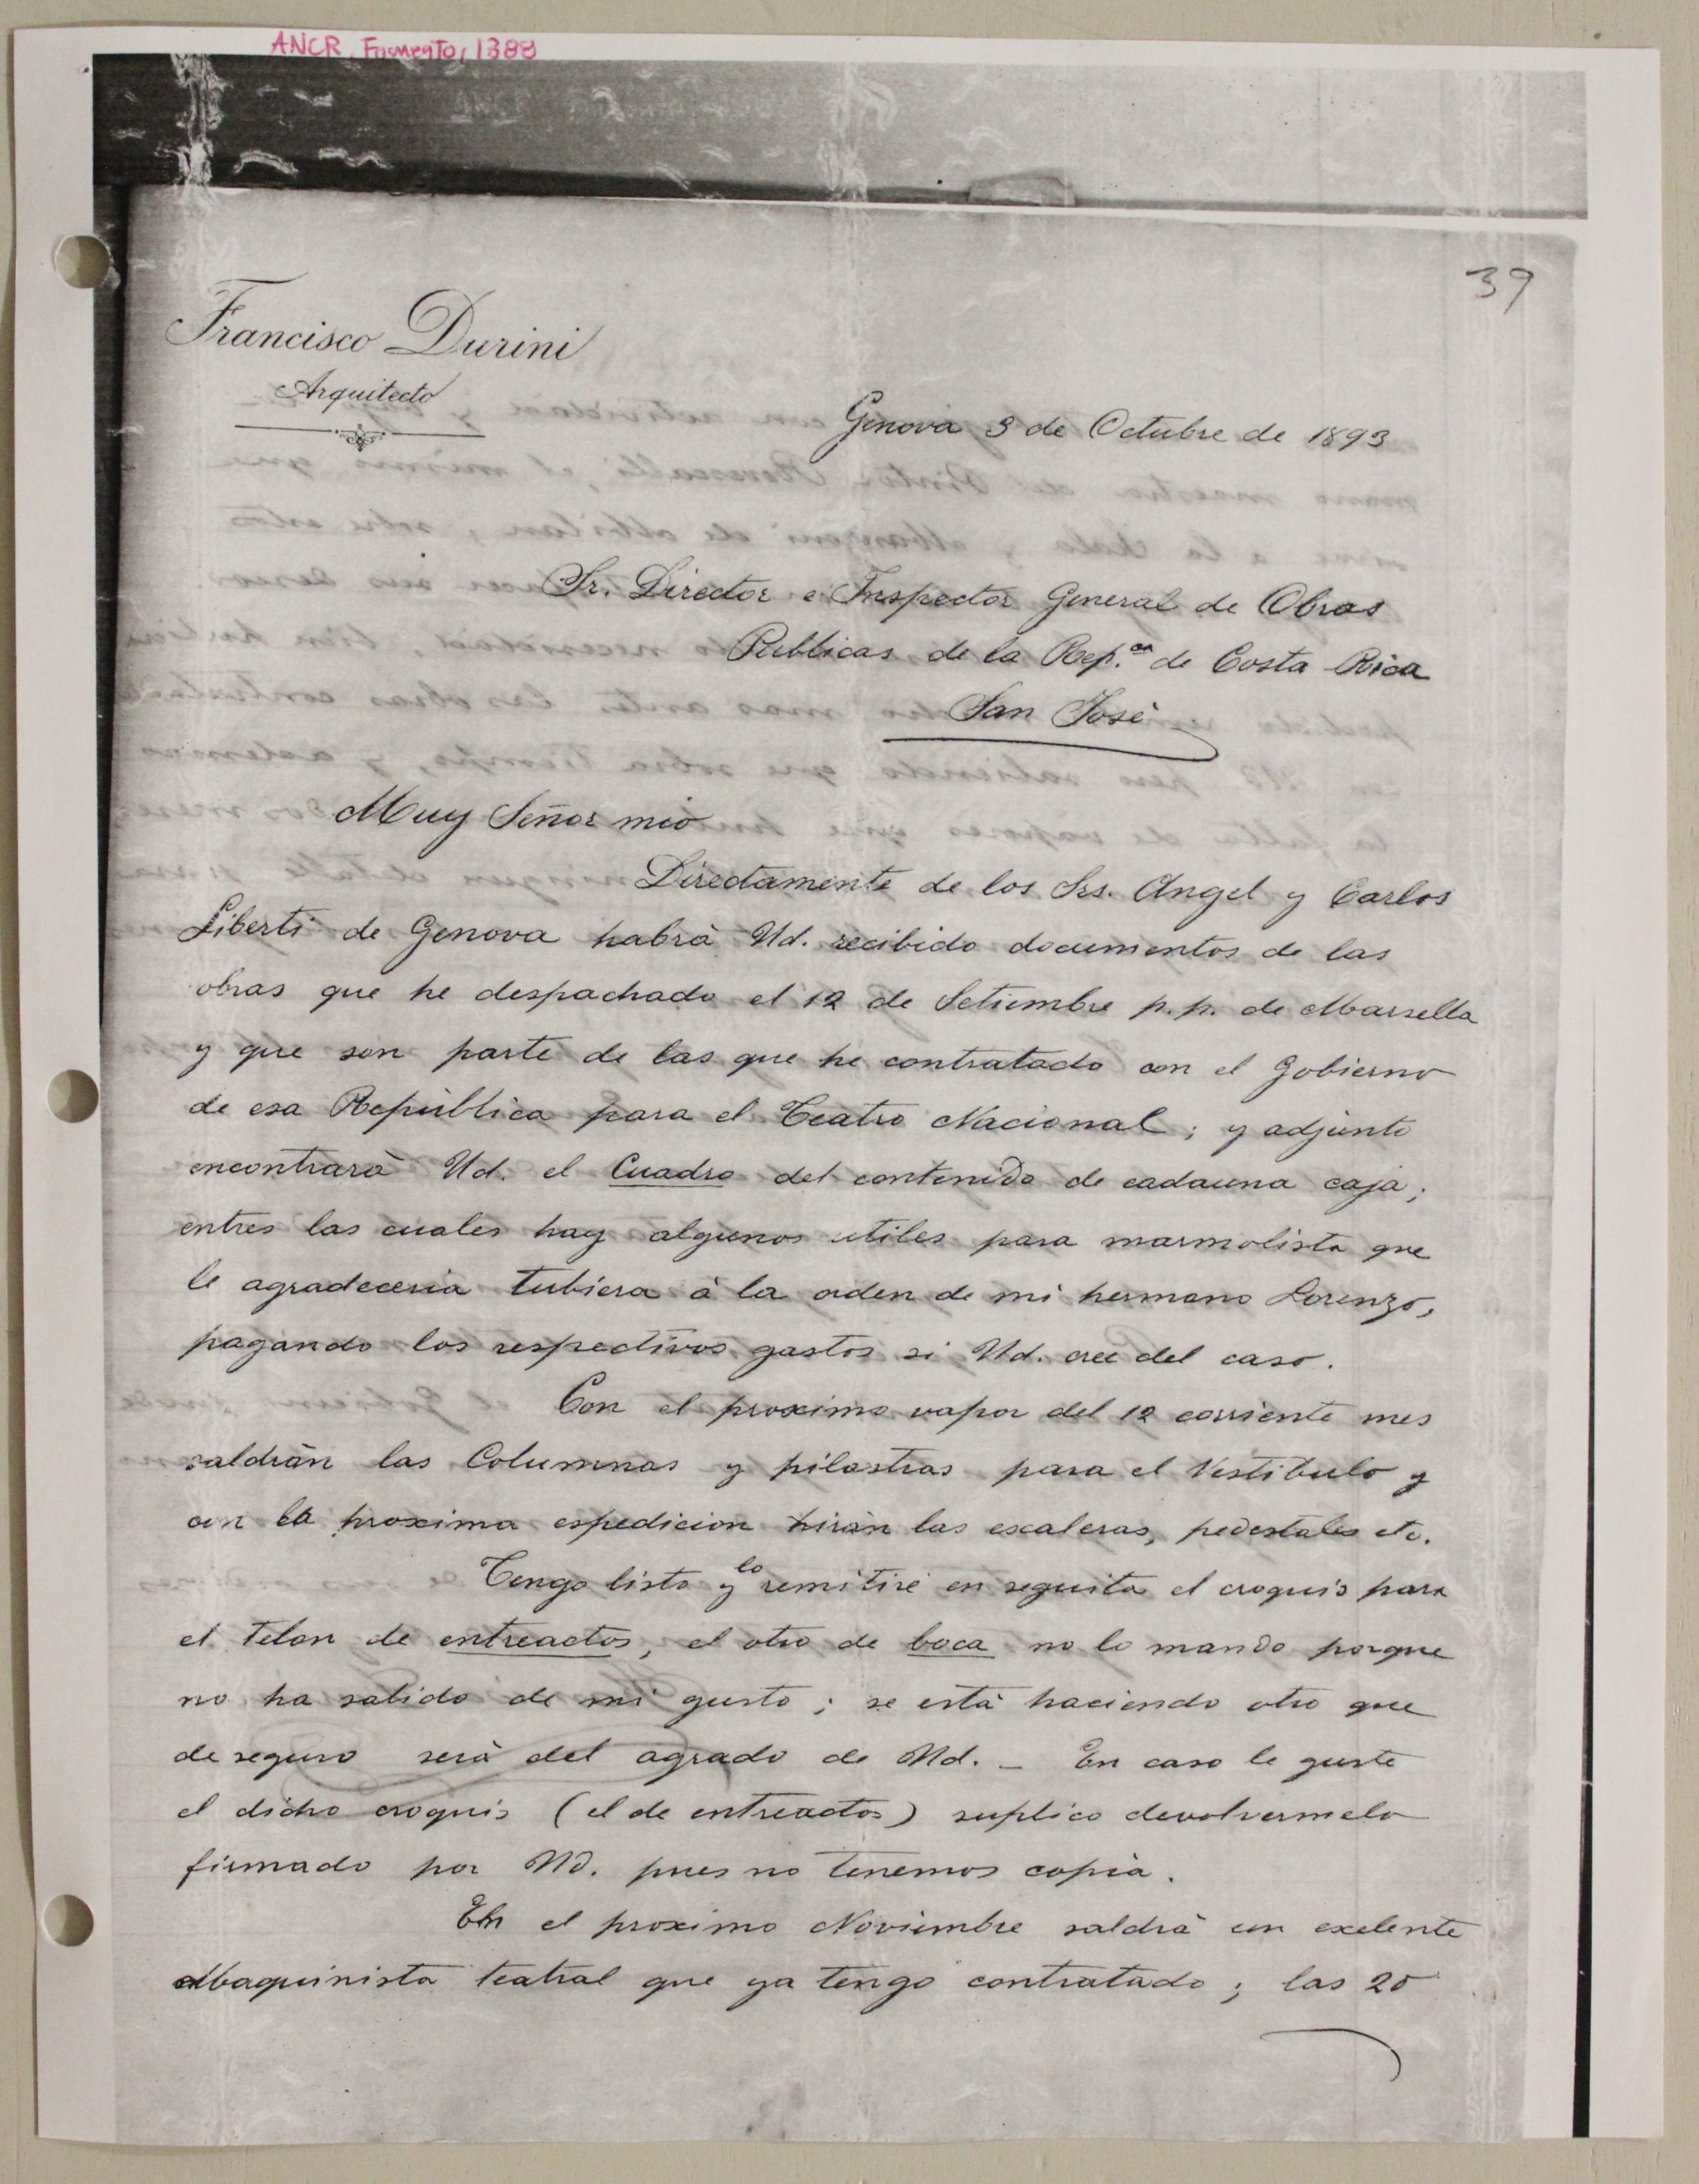 ANCR, Fomento, 1388
39
Francisco Durini
Arquitecto
Genova 3 de Octubre de 1893
Sr. Director e Inspector General de Obras
Publicas de la Rep.ca de Costa Rica
San Josè
Muy Señor mio
Directamente de los Srs. Angel y Carlos
Liberti de Genova habrà Ud. recibido documentos de las
obras que he despachado el 12 de Setiembre p.p. de Marsella
y que son parte de las que he contratado con el Gobierno
de esa Repùblica para el Teatro Nacional; y adjunto
encontrarà Ud. el Cuadro del contenido de cadauna caja;
entres las cuales hay algunos utiles para marmolista que
le agradeceria tubiera à la orden de mi hermano Lorenzo,
pagando los respectivos gastos si Ud. cree del caso.
Con el proximo vapor del 12 corriente mes
saldràn las Columnas y pilastras para el Vestibulo y
con la proxima espedicion hiràn las escaleras, pedestales etc.
Tengo listo y lo remitirè en seguita el croquis para
el telon de entreactos, el otro de boca no lo mando porque
no ha salido de mi gusto; se està haciendo otro que
de seguro serà del agrado de Ud. – En caso le guste
el dicho croquis (el de entreactos) suplico devolvermelo
firmado por Ud. pues no tenemos copia.
En el proximo Noviembre saldrà un exelente
Maquinista teatral que ya tengo contratado; las 20